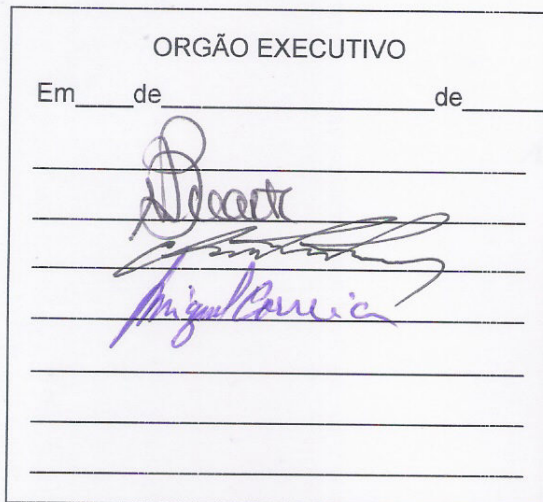 ORGÃO EXECUTIVO
Em____de____________________de______
Miguel Correia